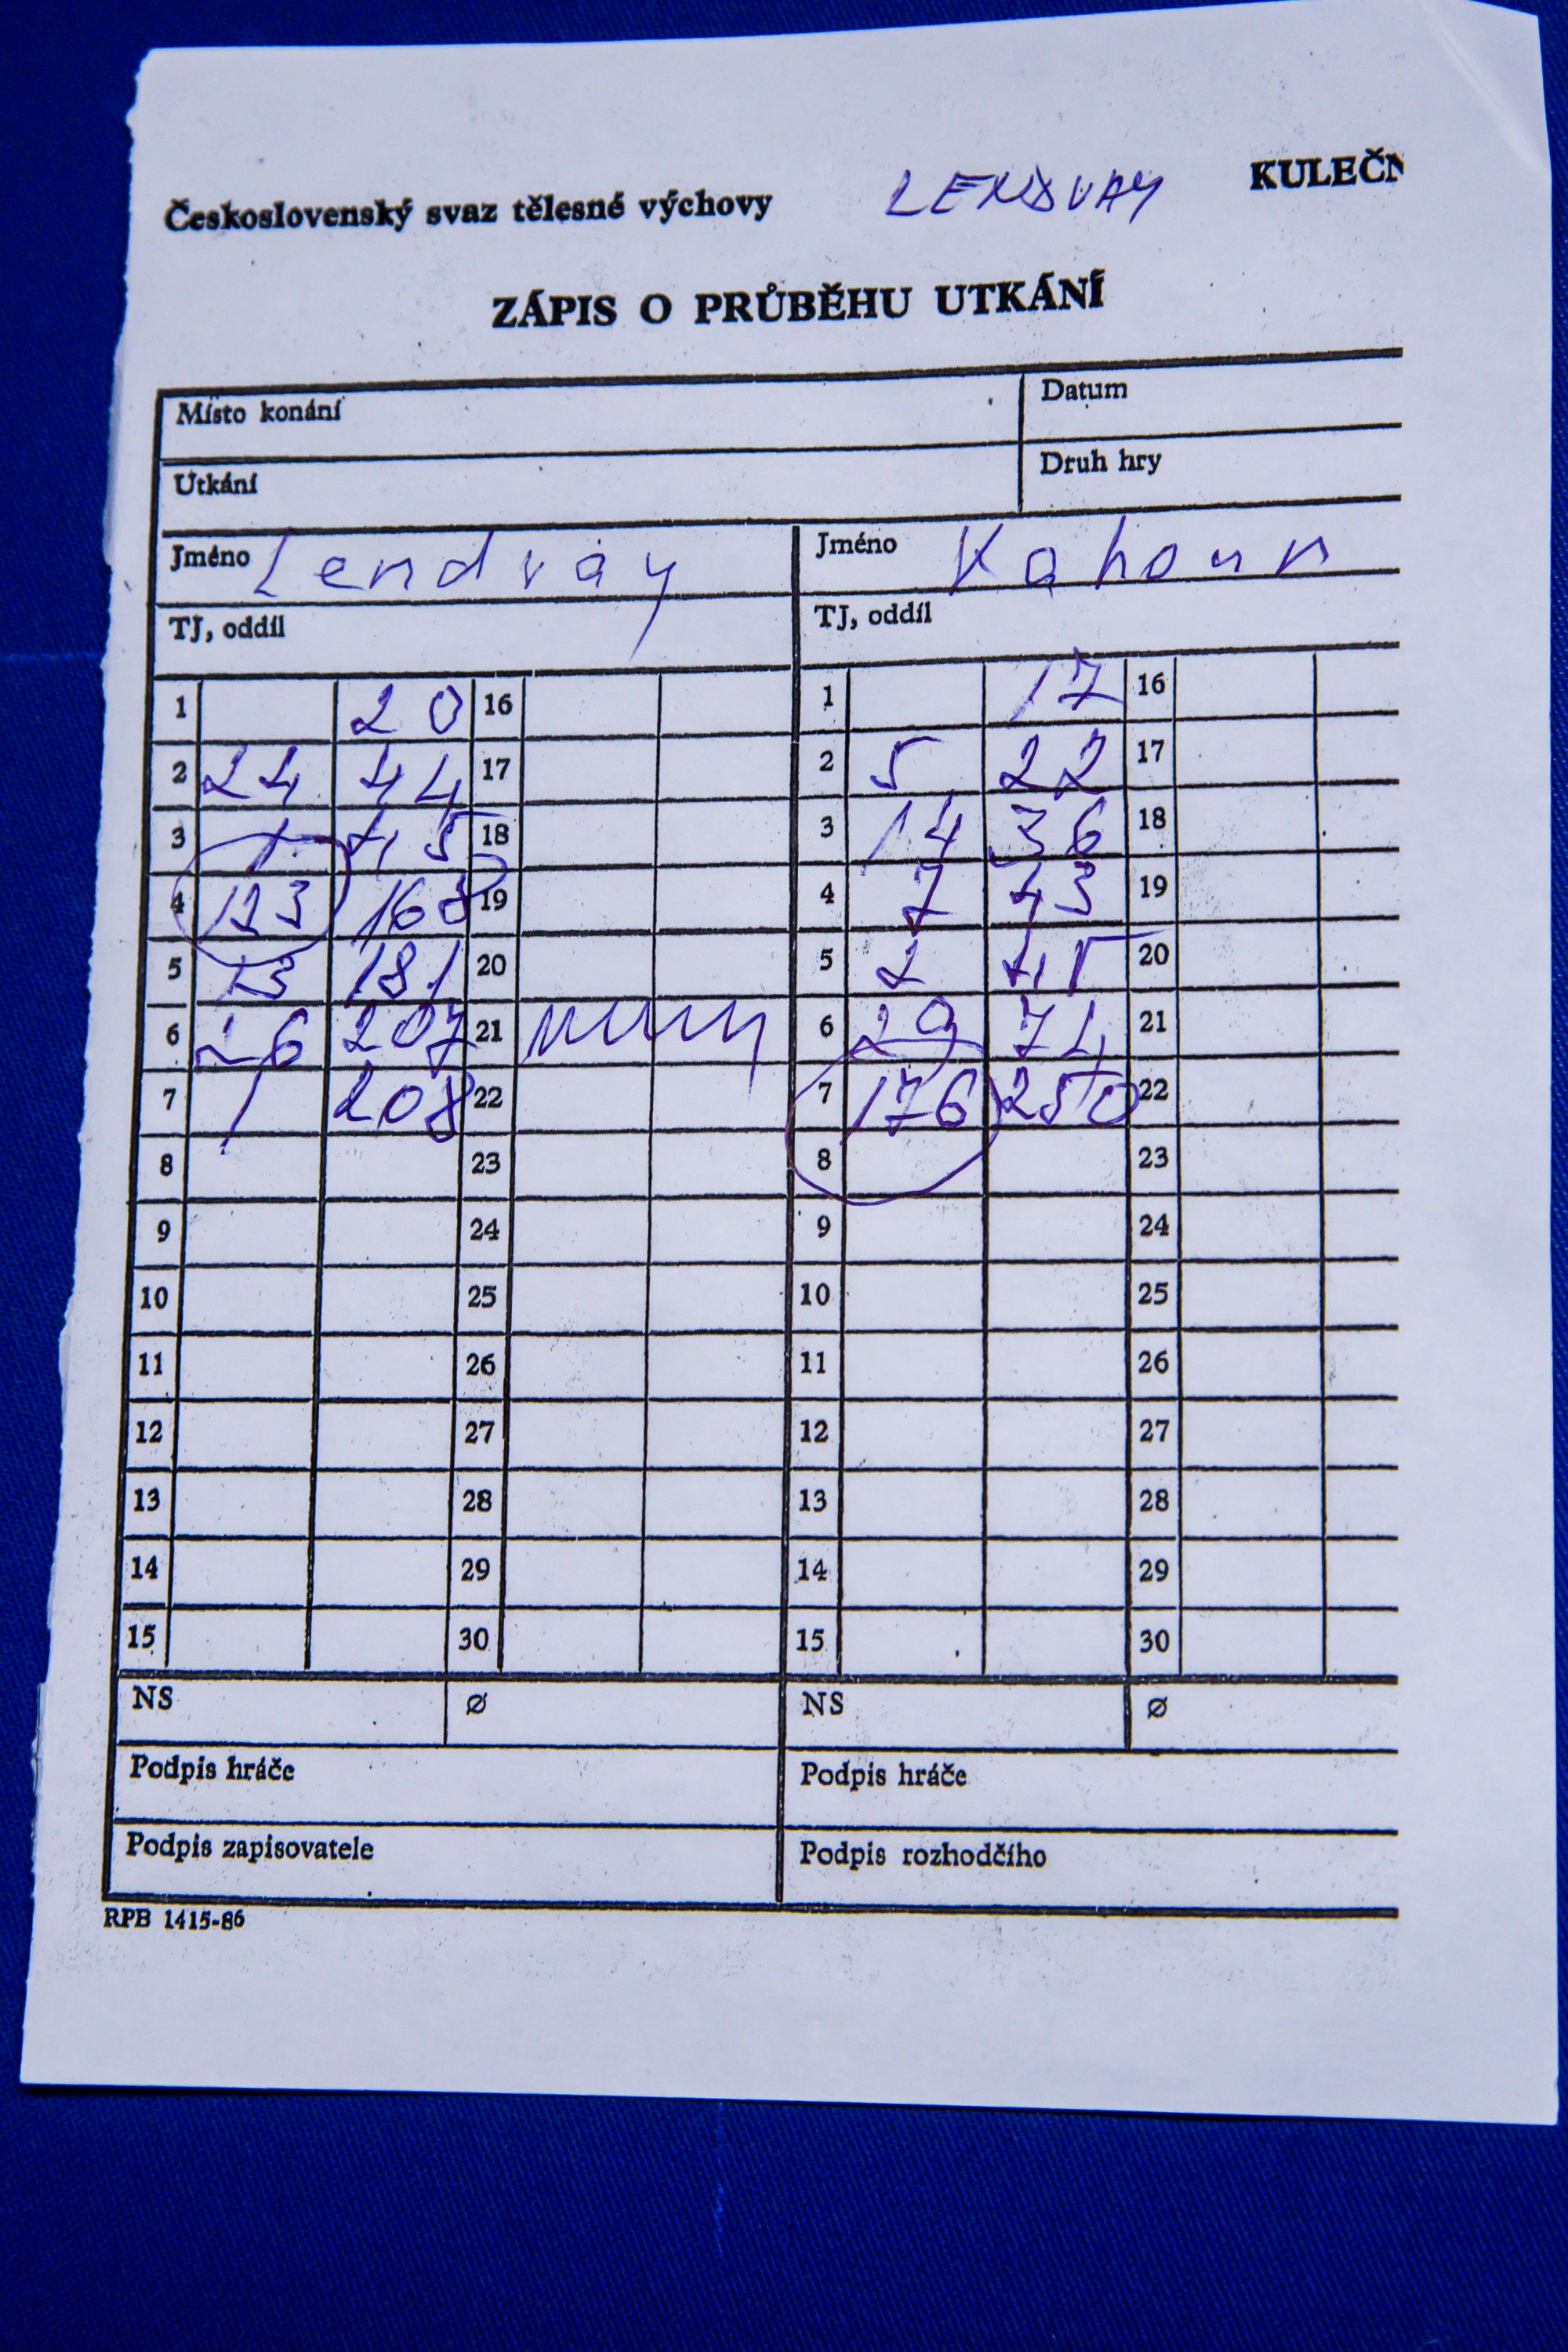 Československý svaz tělesné výchovy LENDVAY KULEČN
ZÁPIS O PRŮBĚHU UTKÁNÍ
Místo konání Datum
Utkání Druh hry
Jméno Lendvay Jméno Kahoun
TJ, oddíl TJ, oddíl
1 20 16 1 17 16
2 24 44 17 2 5 22 17
3 1 45 18 3 14 36 18
4 123 168 19 4 7 43 19
5 13 181 20 5 2 45 20
6 26 207 21 6 29 74 21
7 1 208 22 7 176 250 22
8 23 8 23
9 24 9 24
10 25 10 25
11 26 11 26
12 27 12 27
13 28 13 28
14 29 14 29
15 30 15 30
NS Ø NS Ø
Podpis hráče Podpis hráče
Podpis zapisovatele Podpis rozhodčího
RPB 1415-86